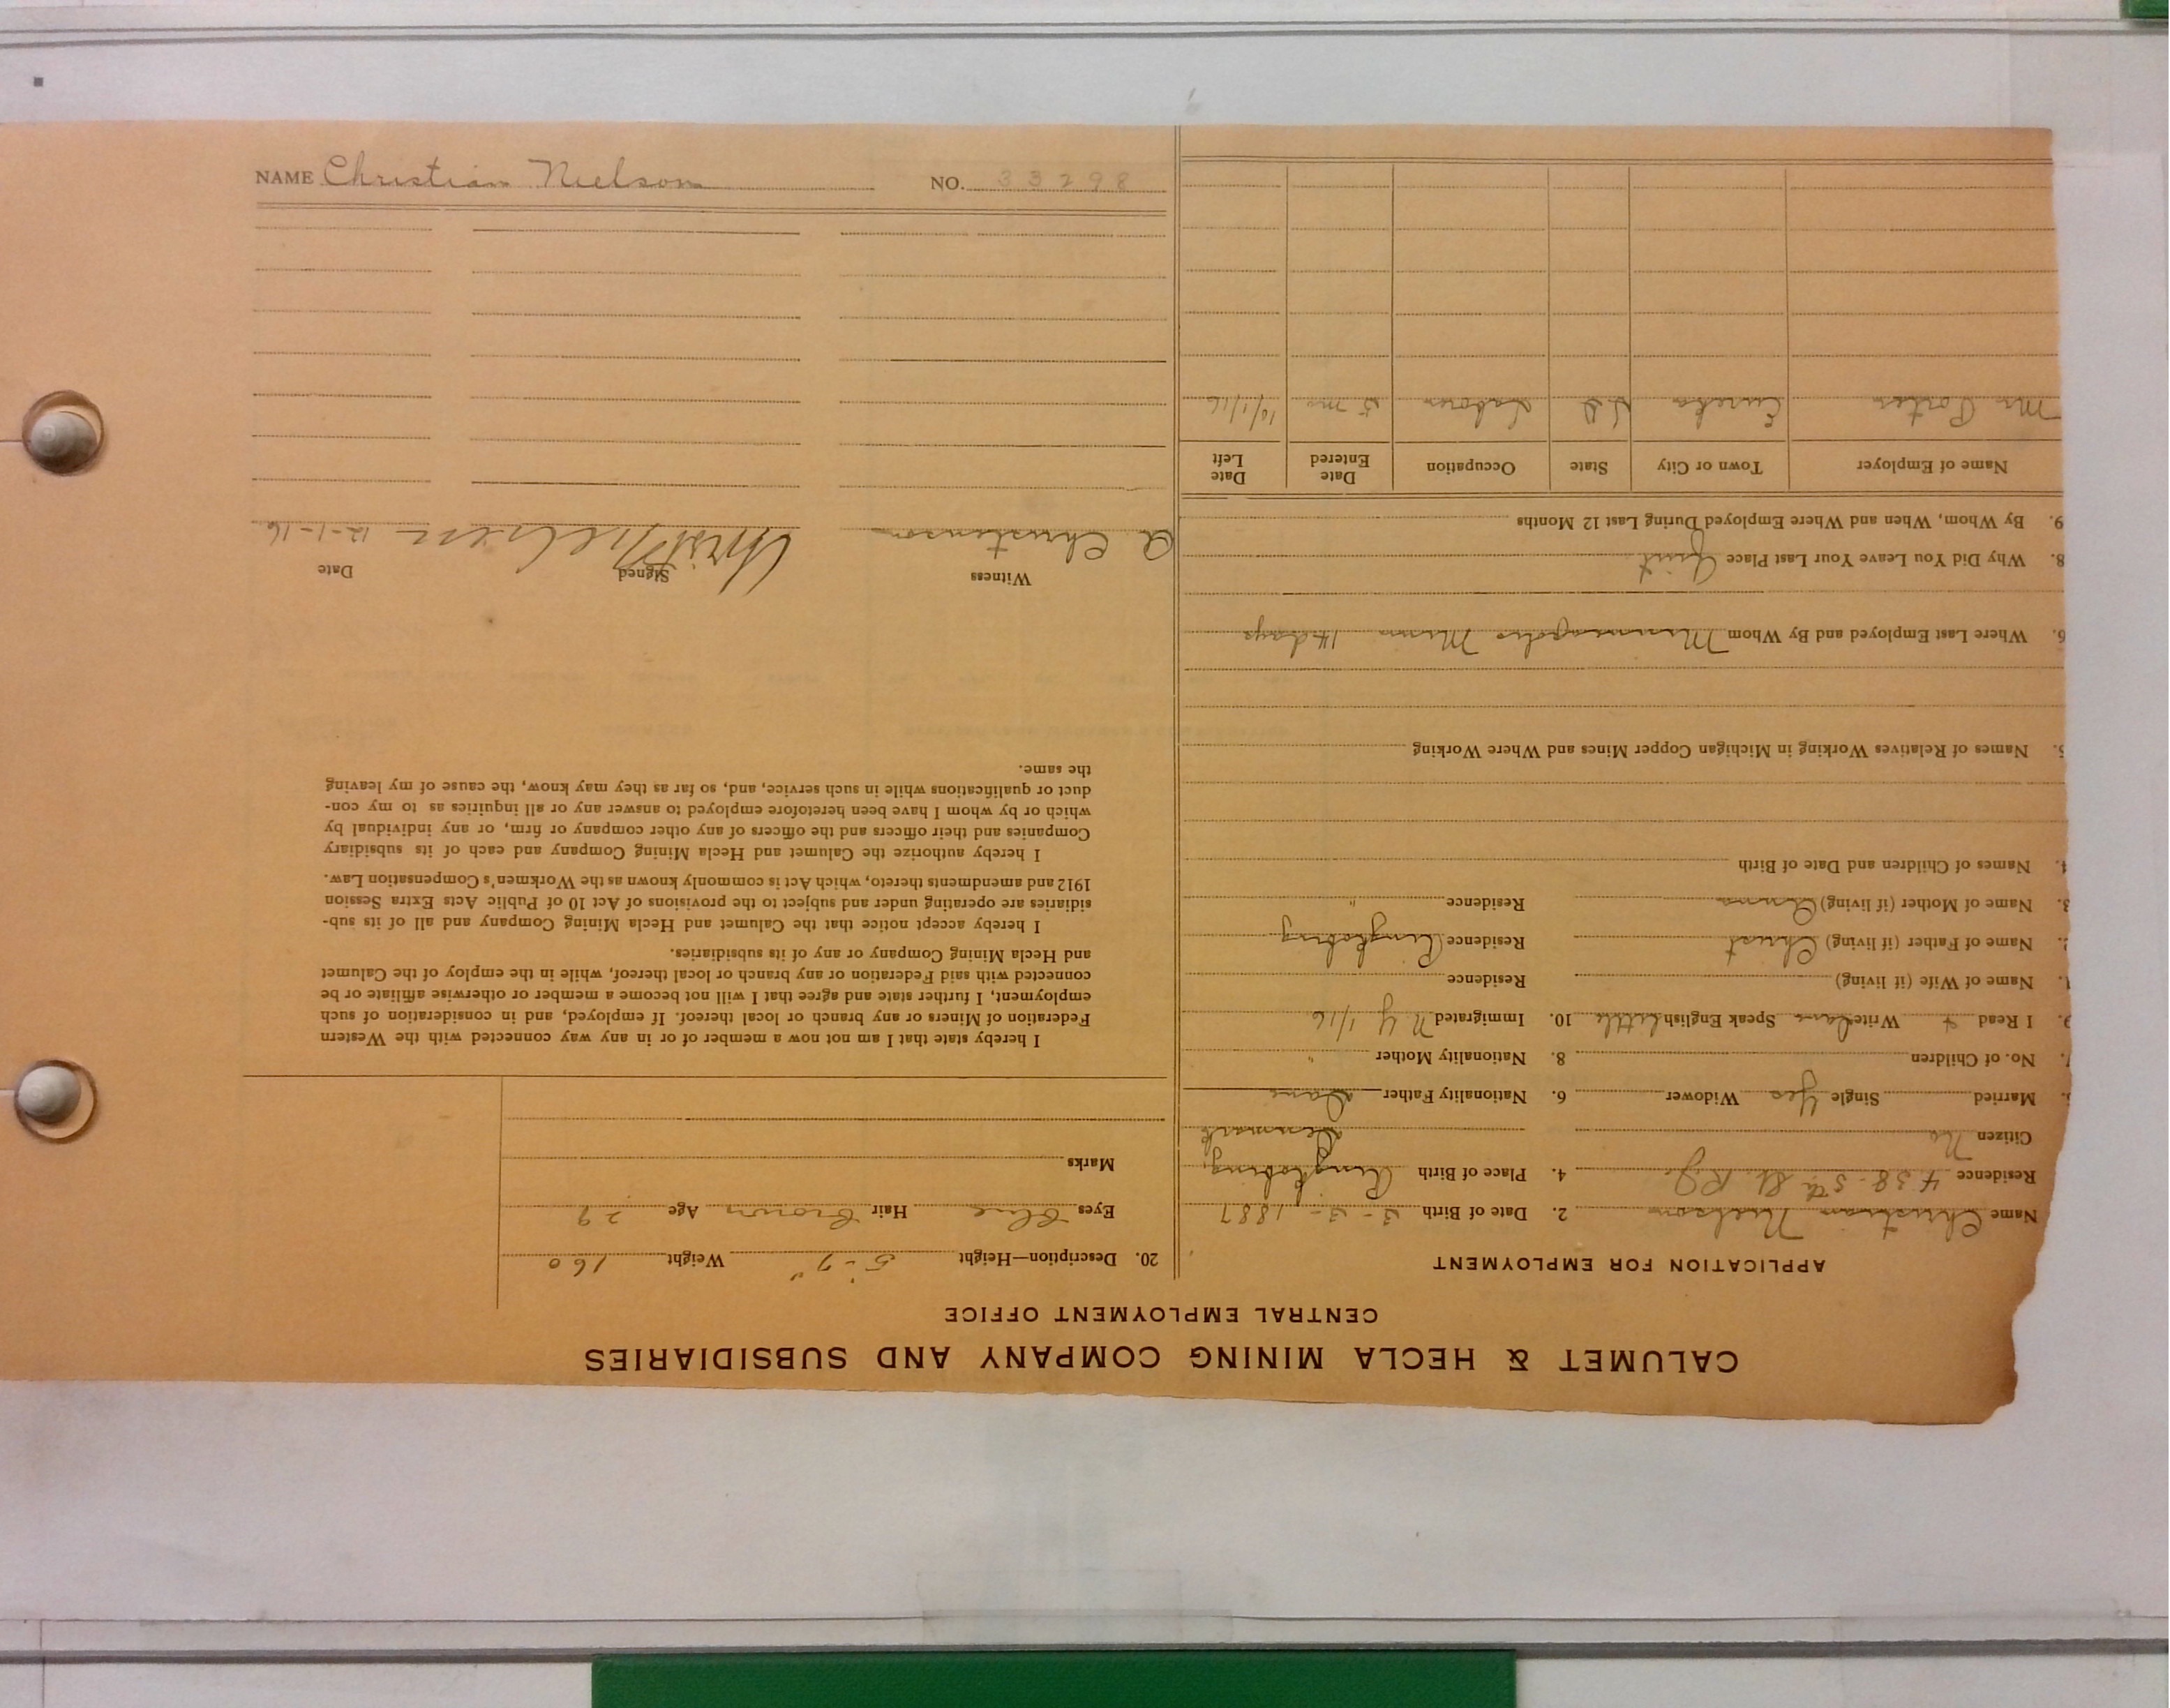 CALUMET & HECLA MINING COMPANY AND SUBSIDIARIES
CENTRAL EMPLOYMENT OFFICE
APPLICATION FOR EMPLOYMENT
Name Christian Nielson 2. Date of Birth 3-3-1887
Residence 438-5th St. R.J. 4. Place of Birth Ringkobing,
Citizen No Denmark
Married Single Yes Widower 6. Nationality Father Dane
7. No. of Children 8. Nationality Mother "
9. I Read + Write Dane Speak English Little 10. Immigrated N Y 1/16
1. Name of Wife (if living) Residence
2. Name of Father (if living) Christ Residence Ringkobing
3. Name of Mother (if living) Residence "
4. Names of Children and Date of Birth
5. Names of Relatives Working in Michigan Copper Mines and Where Working
6. Where Last Employed and By Whom Minneapolis Minn 14 days
8. Why Did You Leave Your Last Place Quit
9. By Whom, When and Where Employed During Last 12 Months
Name of Employer Town or City State Occupation Date Entered Date Left
Mr Porter Eureka S.D Laborer 5 mo 10/1/16
20. Description—Height 5'-7" Weight 160
Eyes Blue Hair Brown Age 29
Marks
I hereby state that I am not now a member of or in any way connected with the Western
Federation of Miners or any branch or local thereof. If employed, and in consideration of such
employment, I further state and agree that I will not become a member or otherwise affiliate or be
connected with said Federation or any branch or local thereof, while in the employ of the Calumet
and Hecla Mining Company or any of its subsidiaries.
I hereby accept notice that the Calumet and Hecla Mining Company and all of its sub-
sidiaries are operating under and subject to the provisions of Act 10 of Public Acts Extra Session
1912 and amendments thereto, which Act is commonly known as the Workmen's Compensation Law.
I hereby authorize the Calumet and Hecla Mining Company and each of its subsidiary
Companies and their officers and the officers of any other company or firm, or any individual by
which or by whom I have been heretofore employed to answer any or all inquiries as to my con-
duct or qualifications while in such service, and, so far as they may know, the cause of my leaving
the same.
Witness Signed Date
A Christenson Christ Nielsen 12-1-16
NAME Christian Nielson NO. 33298